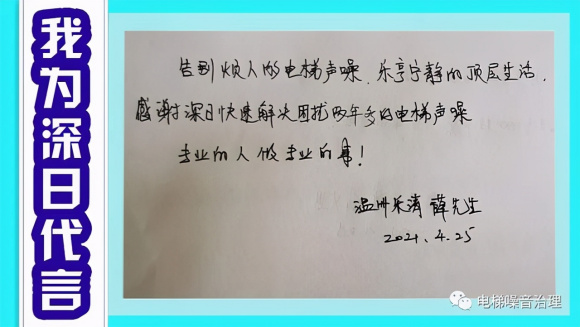 我为深日代言
告别烦人的电梯声噪、乐享宁静的顶层生活，
感谢深日快速解决困扰两年多的电梯声噪
专业的人做专业的事！
温州乐清 薛先生
2021.4.25
电梯噪音治理